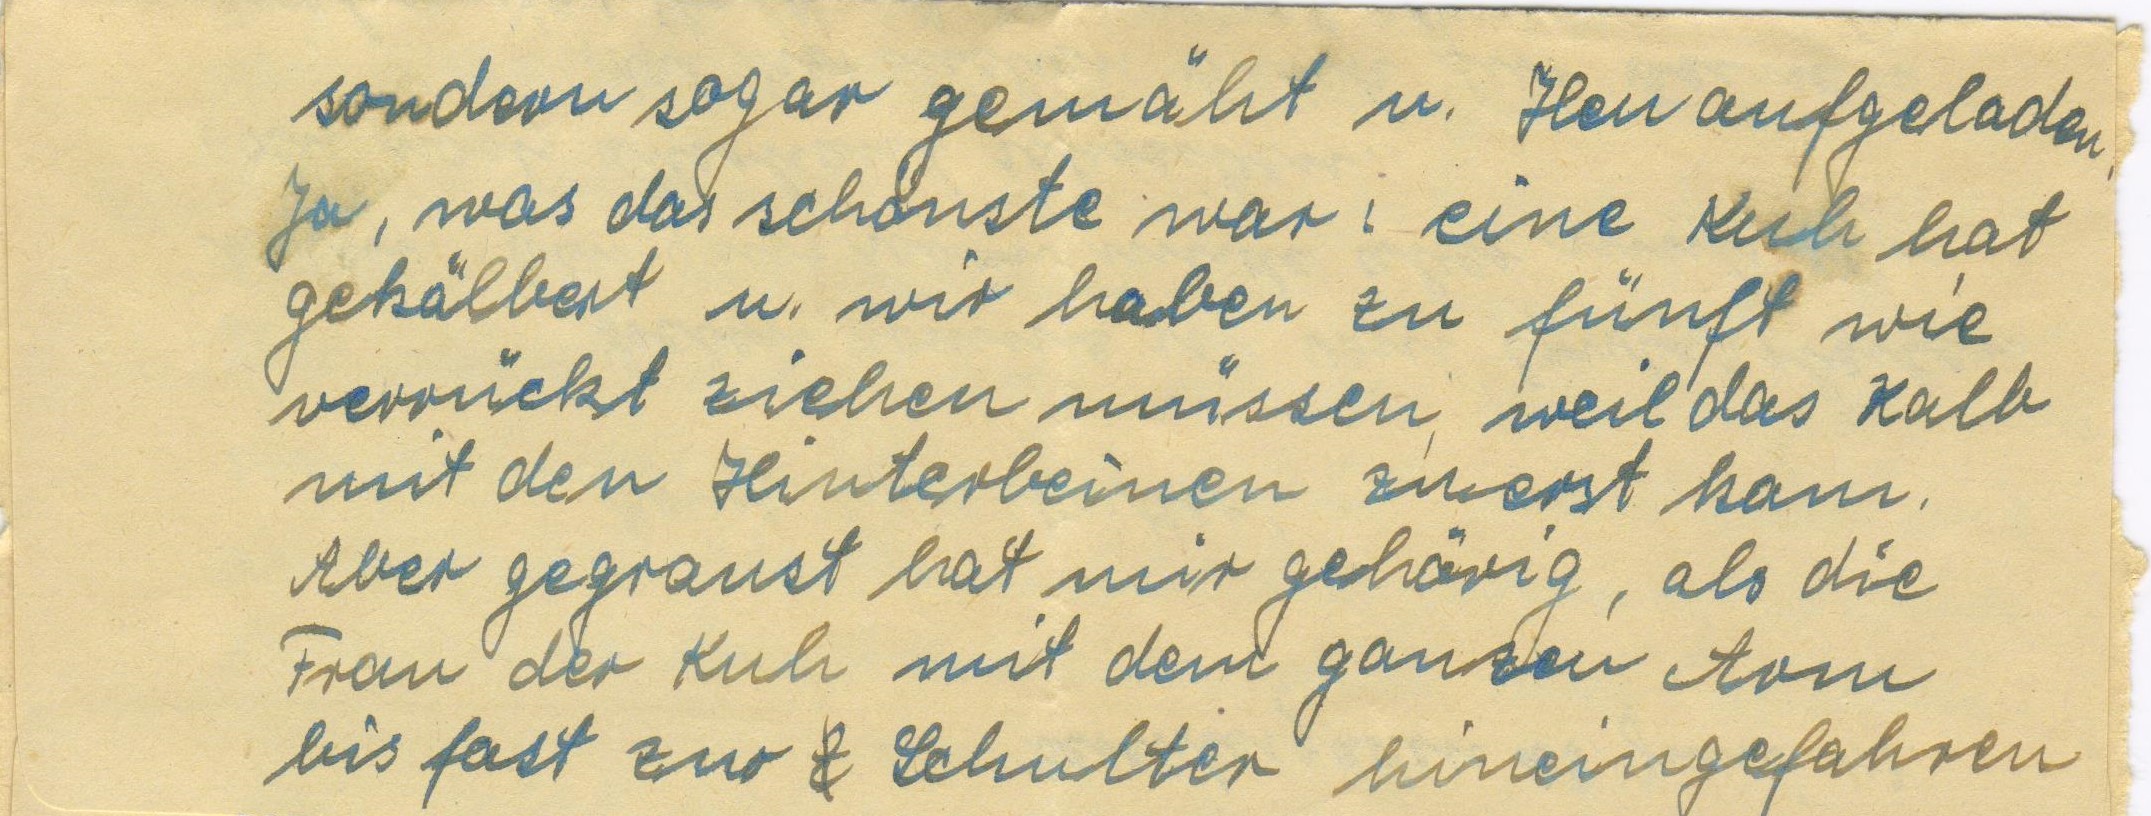 sondern sogar gemäht u. Heu aufgeladen.
Ja, was das schönste war: eine Kuh hat
gekälbert u. wir haben zu fünft wie
verrückt ziehen müssen, weil das Kalb
mit den Hinterbeinen zuerst kam.
Aber gegraust hat mir gehörig, als die
Frau der Kuh mit dem ganzen Arm
bis fast zur Schulter hineingefahren